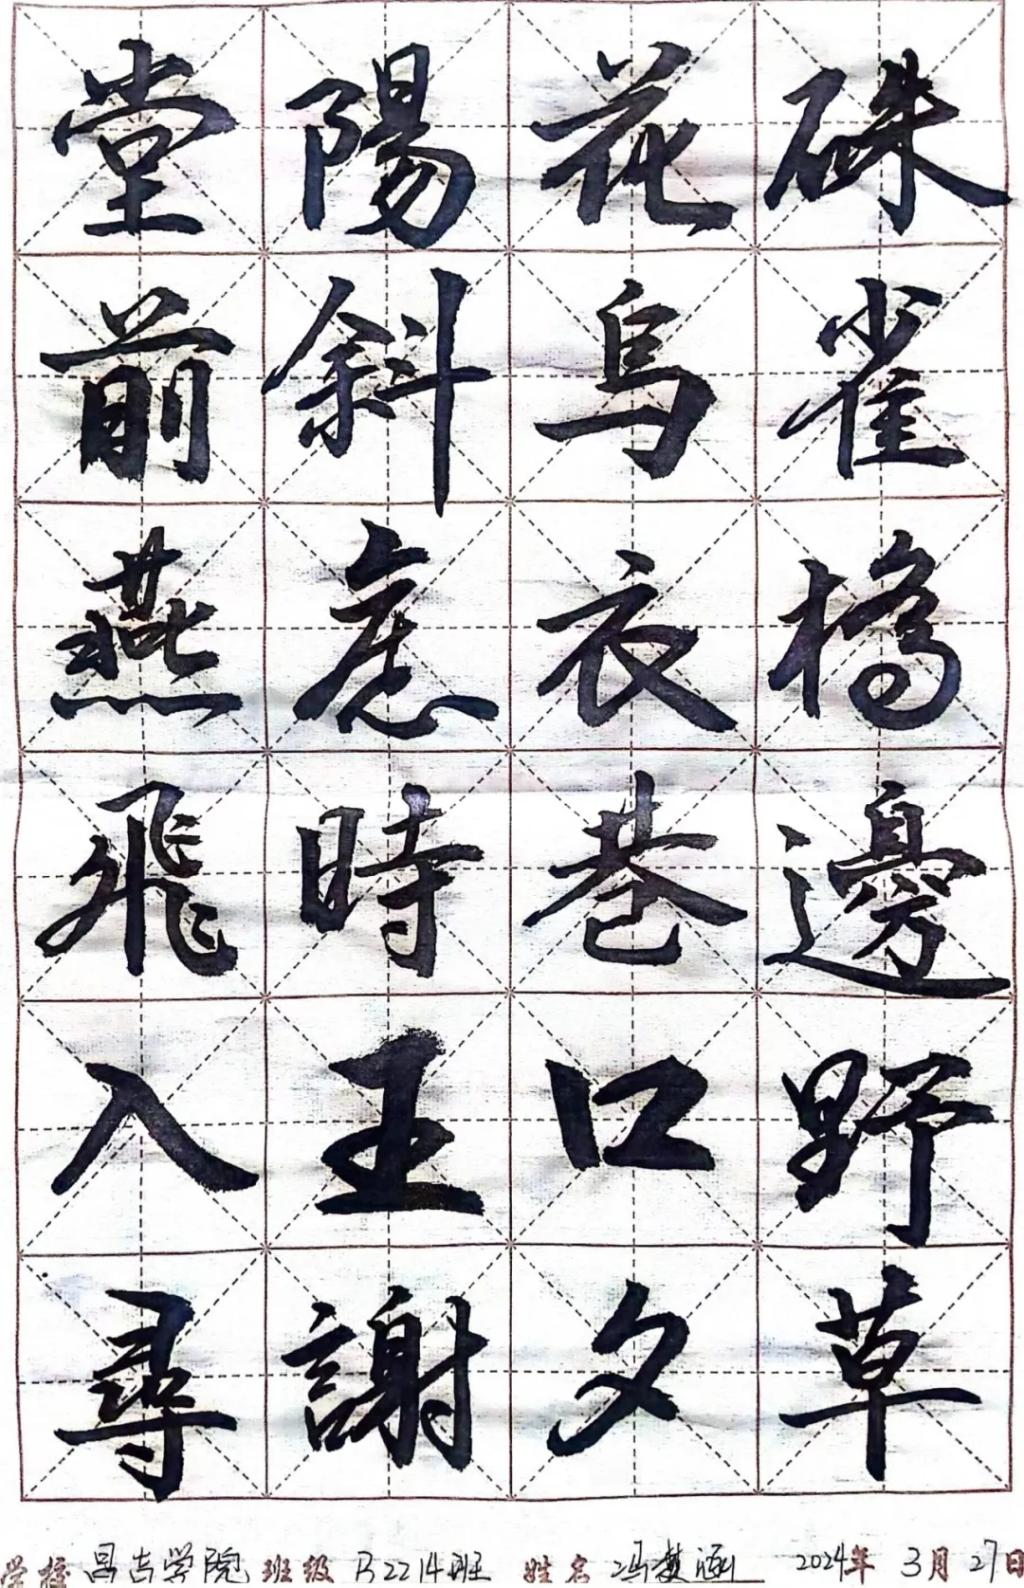 硃雀橋邊野草
花烏衣巷口夕
陽斜處時王謝
堂前燕飛入尋
学校 昌吉学院 班级 B2214班 姓名 冯楚涵 2024年 3月 27日